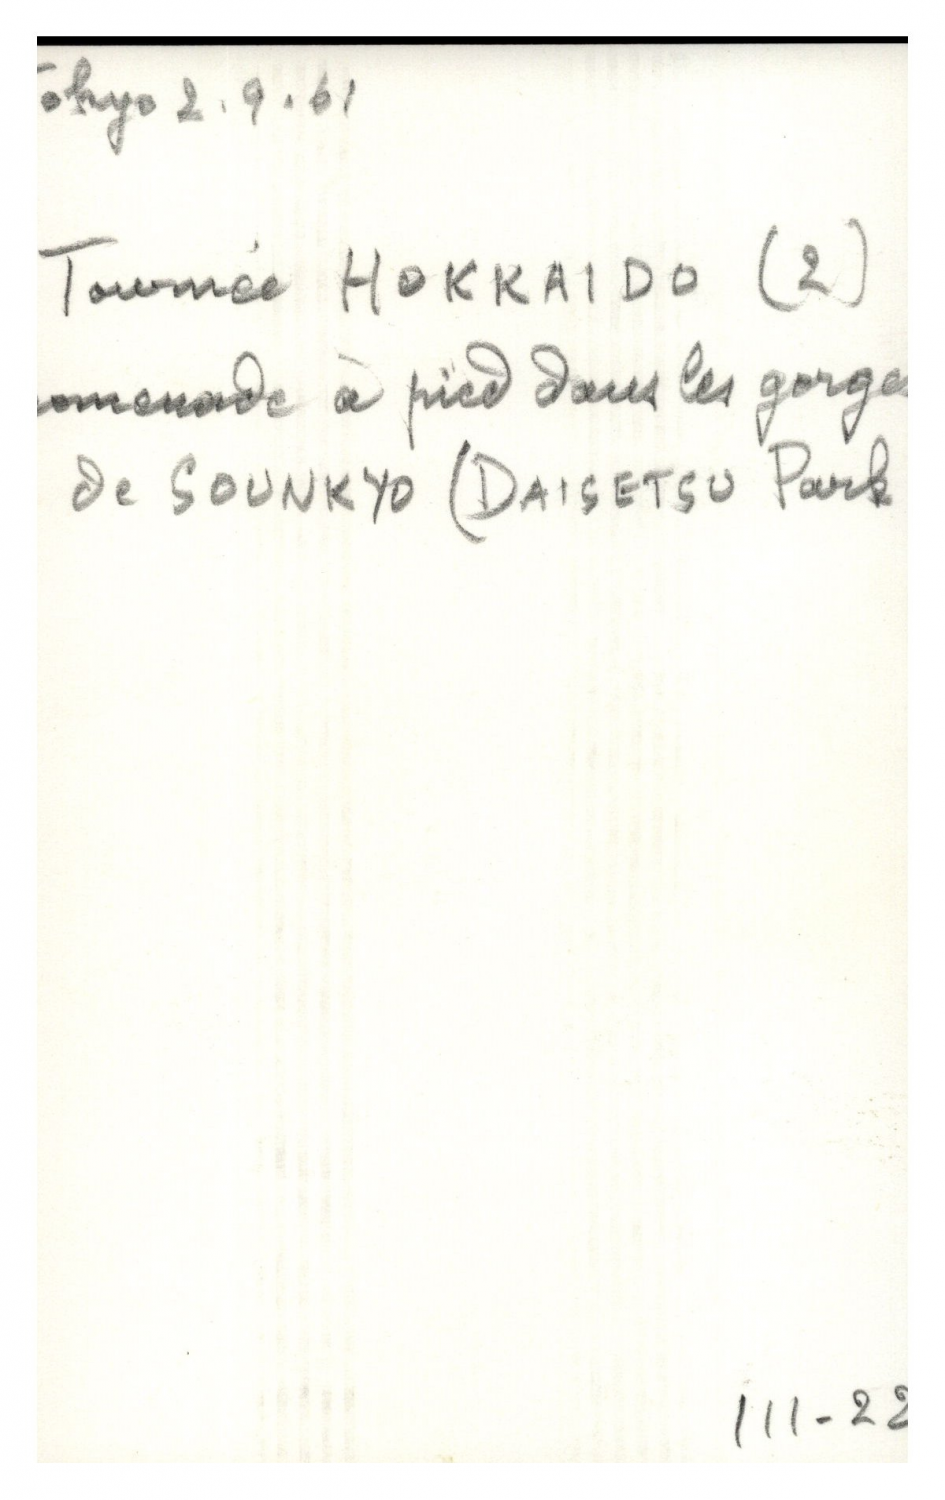 Tokyo 2.9.61
Tournée HOKKAIDO (2)
omenade à pied dans les gorges
de SOUNKYO (DAISETSU Park
III-22